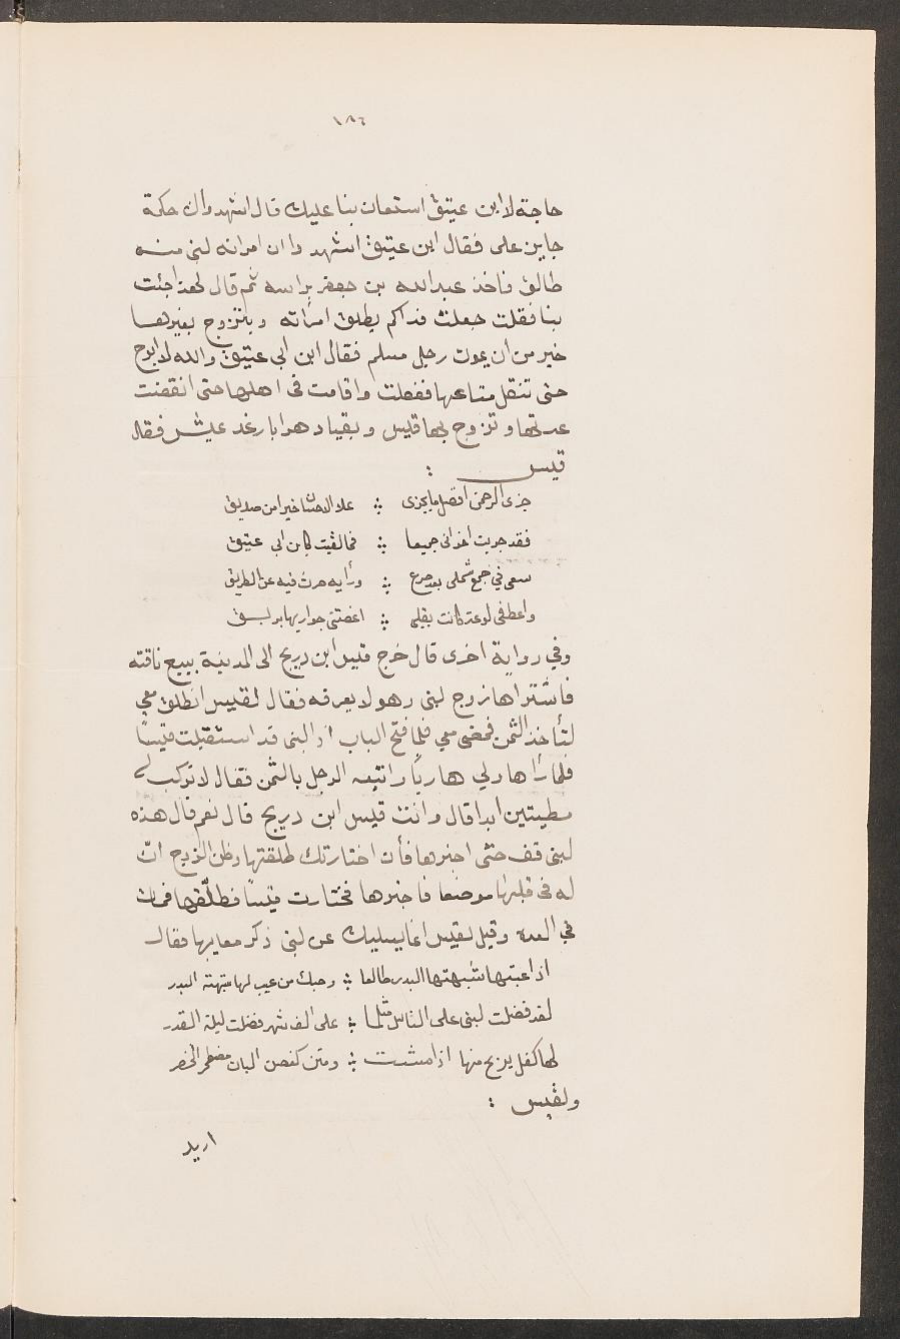 ١٨٦
حاجة لابن عتيق استعان بنا عليك قال اشهدوا ان حكمة
جايز على فقال ابن عتيق اشهد وا ان امراته لبنى منه
طالق فاخذ عبدالله بن جعفر براسه ثم قال لهذا جئت
بنا فقلت جعلت فداكم يطلق امراته ويتزوج بغيرها
خير من ان يموت رجل مسلم فقال ابن ابي عتيق والله لا ابرح
حتى تنقل متاعها ففعلت واقامت في اهلها حتى انقضت
عدتها وتزوج بها قيس وبقيا دهرا بارغد عيش فقال
قيس :
جزى الرحمن افضل ما يجزى ؞ على الاحسان خيرا من صديق
فقد جربت اخواني جميعا ؞ فما لقيت كابن ابي عتيق
سعى في جمع شملى بعد صدع ؞ ورأيه حرت فيه عن الطريق
واعطفى لوعة كانت بقلبي ؞ اغصتنى جواريها بريق
وفي رواية اخرى قال خرج قيس ابن دريح الى المدينة يبيع ناقته
فاشتراها زوج لبنى وهو لا يعرفه فقال لقيس انطلق معي
لتأخذ الثمن فمضى معي فلما فتح الباب اذ البنى قد استقبلت قيسًا
فلما رأها ولي هاربًا واتبعه الرجل بالثمن فقال لا تركب لي
مطيتين ابدا قال وانت قيس ابن دريح قال نعم قال هذه
لبنى قف حتى اخيرها فأن اختارتك طلقتها وظن الزوج انّ
له في قلبها موضعا فاخيرها فختارت قيسًا فطلّقها فماتت
في العدة وقيل لقيس انما يسليك عن لبنى ذكر معايبها فقال
اذا عبتها شبهتها البدر طالعا ؞ وحبك من عيب لها شبهة البدر
لقد فضلت لبنى على الناس مثلما ؞ على الف شهر فضلت ليلة القدر
لها كفل يرتج منها اذا مشت ؞ ومتن كغصن البان مضطمر الخصر
ولقيس :
اريد